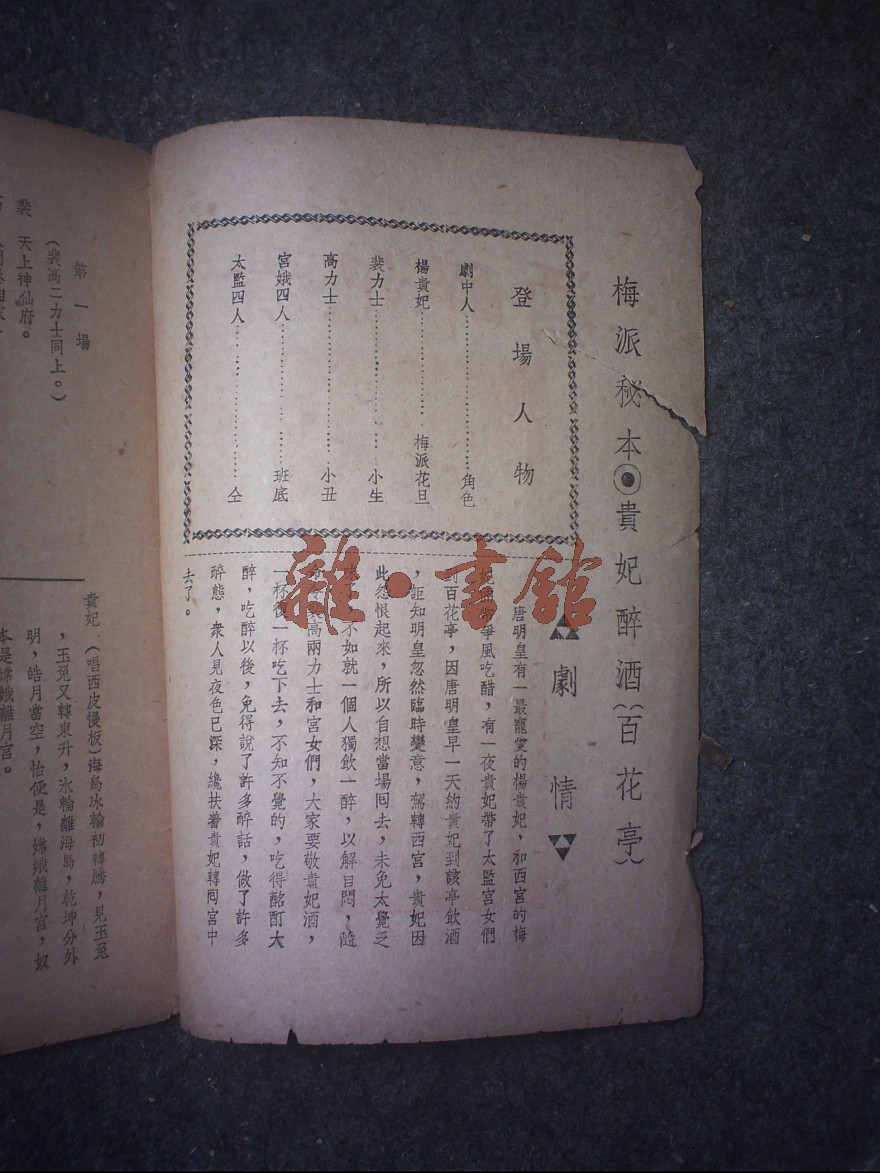 梅派秘本◉貴妃醉酒(百花亭)
登場人物
劇中人……角色
楊貴妃……梅派花旦
裴力士……小生
高力士……小丑
宮娥四人……班底
太監四人……仝
劇情
唐明皇有一最寵愛的楊貴妃，和西宮的梅
爭風吃醋，有一夜貴妃帶了太監宮女們
到百花亭，因唐明皇早一天約貴妃到該亭飲酒
，詎知明皇忽然臨時變意，駕轉西宮，貴妃因
此怨恨起來，所以自想當場囘去，未免太覺乏
不如就一個人獨飲一醉，以解自悶，隨
裴高兩力士和宮女們，大家要敬貴妃酒，
一杯復一杯吃下去，不知不覺的，吃得酩酊大
醉，吃醉以後，免得說了許多醉話，做了許多
醉態，衆人見夜色已深，纔扶着貴妃轉囘宮中
去了。
第一場
(裴高二力士同上。)
裴 天上神仙府。
貴妃 (唱西皮慢板)海島冰輪初轉騰，見玉兔
，玉兔又轉東升，冰輪離海島，乾坤分外
明，皓月當空，恰便是，嫦娥離月宮，奴
本是嫦娥離月宮。
雜·書館